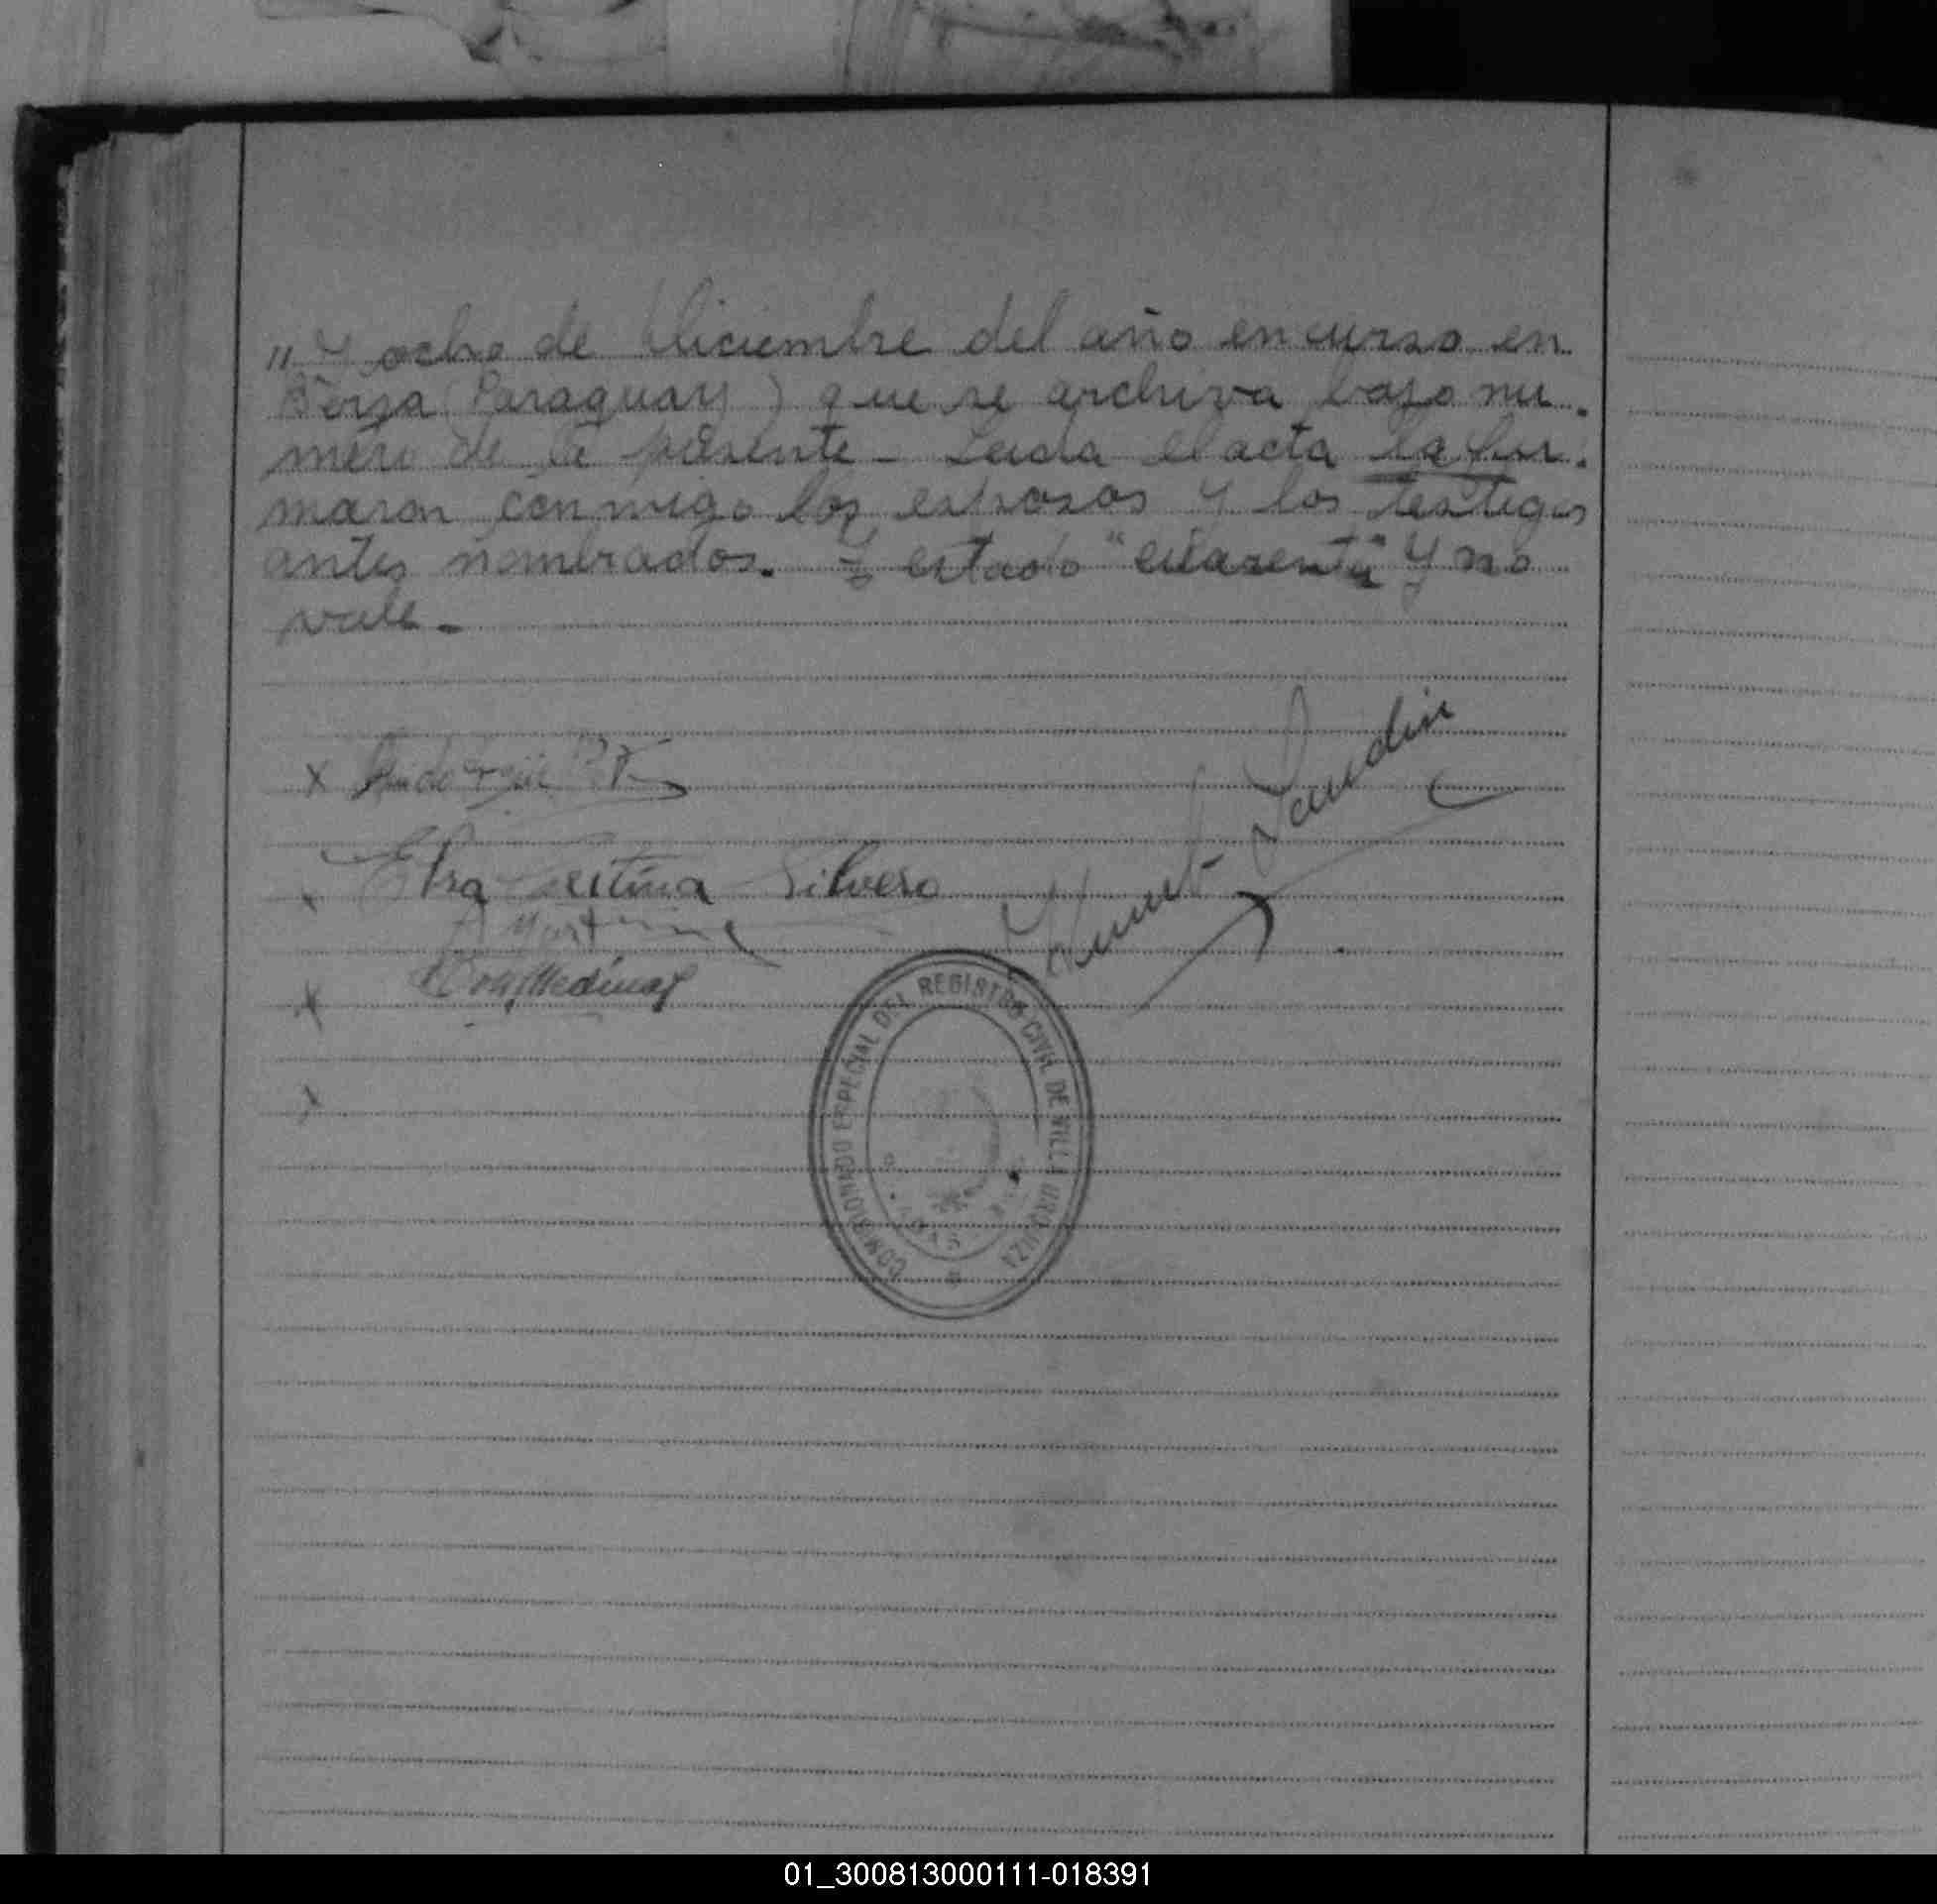 " y ocho de Diciembre del año en curso en
Borja (Paraguay) que se archiva bajo nu
mero de la presente - Leida el acta la fir
maron conmigo los esposos y los testigos
antes nombrados. Testado "cuarenta" y no
vale -
x
x Elsa Cristina Silvero
Martinez
x Medina
x
COMISIONADO ESPECIAL DEL REGISTRO CIVIL DE VILLA URQUIZA
01_300813000111-018391